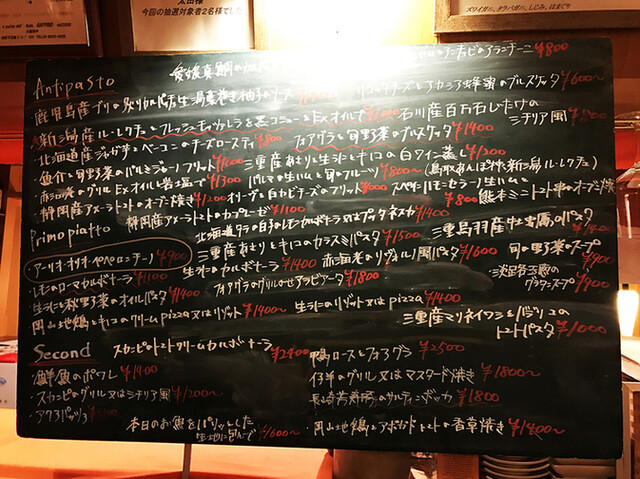 太田様
今回の抽選対象者2名様でした
ズワイガニ、タラバガニ、しじみ、はまぐり
Antipasto 愛媛真鯛のカルパッチョ のアンチョビのアランチーニ ¥800
鹿児島産ブリの炙りカルパッチョ 生湯葉巻き柚子のソース リコッタチーズとアカシア蜂蜜のブルスケッタ ¥600〜
新潟産ル・レクチェとフレッシュモッツァレラを 黒コショーとEXオイルで 石川産百万石しいたけのシチリア風
・北海道産ジャガ芋とベーコンのチーズロースティ ¥800 フォアグラと旬野菜のブルスケッタ ¥1400
・魚介と旬野菜のパルミジャーノフリット ¥1000 三重産あさりと生のりとキノコの白ワイン蒸し ¥1200
・赤海老のグリル EXオイルと岩塩で ¥1300 パルマの生ハムと旬のフルーツ ¥800〜 (鳥取あんぽ柿、新潟ル・レクチェ)
・静岡産アメーラトマトのオーブン焼き ¥1200 オリーブと白カビチーズのフリット ¥700 スペイン ハモンセラーノ生ハムと熊本ミニトマト串のオーブン焼 ¥800
Primo piatto 静岡産アメーラトマトのカプレーゼ ¥1100
北海道タラの白子のレモンカルボナーラ又はプッタネスカ ¥1400
アーリオ・オリオ・ペペロンチーノ ¥900 三重産あさりとキノコのカラスミパスタ ¥1500 三重鳥羽産牡蠣のパスタ
・レモンのローマカルボナーラ ¥1100 生のりのカルボナーラ ¥1400 赤海老のリヴォルノ風パスタ ¥1600 旬の野菜のスープ ¥900
生のりと秋野菜のオイルパスタ ¥1400 フォアグラのグリルのせアラビアータ ¥1800 淡路玉葱のグラタンスープ ¥900
岡山地鶏とキノコのクリームpizza又はリゾット ¥1400〜 生のりのリゾット又はpizza ¥1400
三重産マリネイワシとパン粉のトマトパスタ ¥1000
Second スカンピのトマトクリームカルボナーラ ¥2400 鴨ロースとフォアグラ ¥2500
鮮魚のポワレ ¥1400 仔羊のグリル又はマスタード焼き ¥1800〜
・スカンピのグリル又はシチリア風 ¥1200〜 長崎芳寿豚のサルティンボッカ ¥1800
・アクアパッツァ
本日のお魚をパリッとした生地に包んで ¥1600〜 ・岡山地鶏とアボカドトマトの香草焼き ¥1400〜